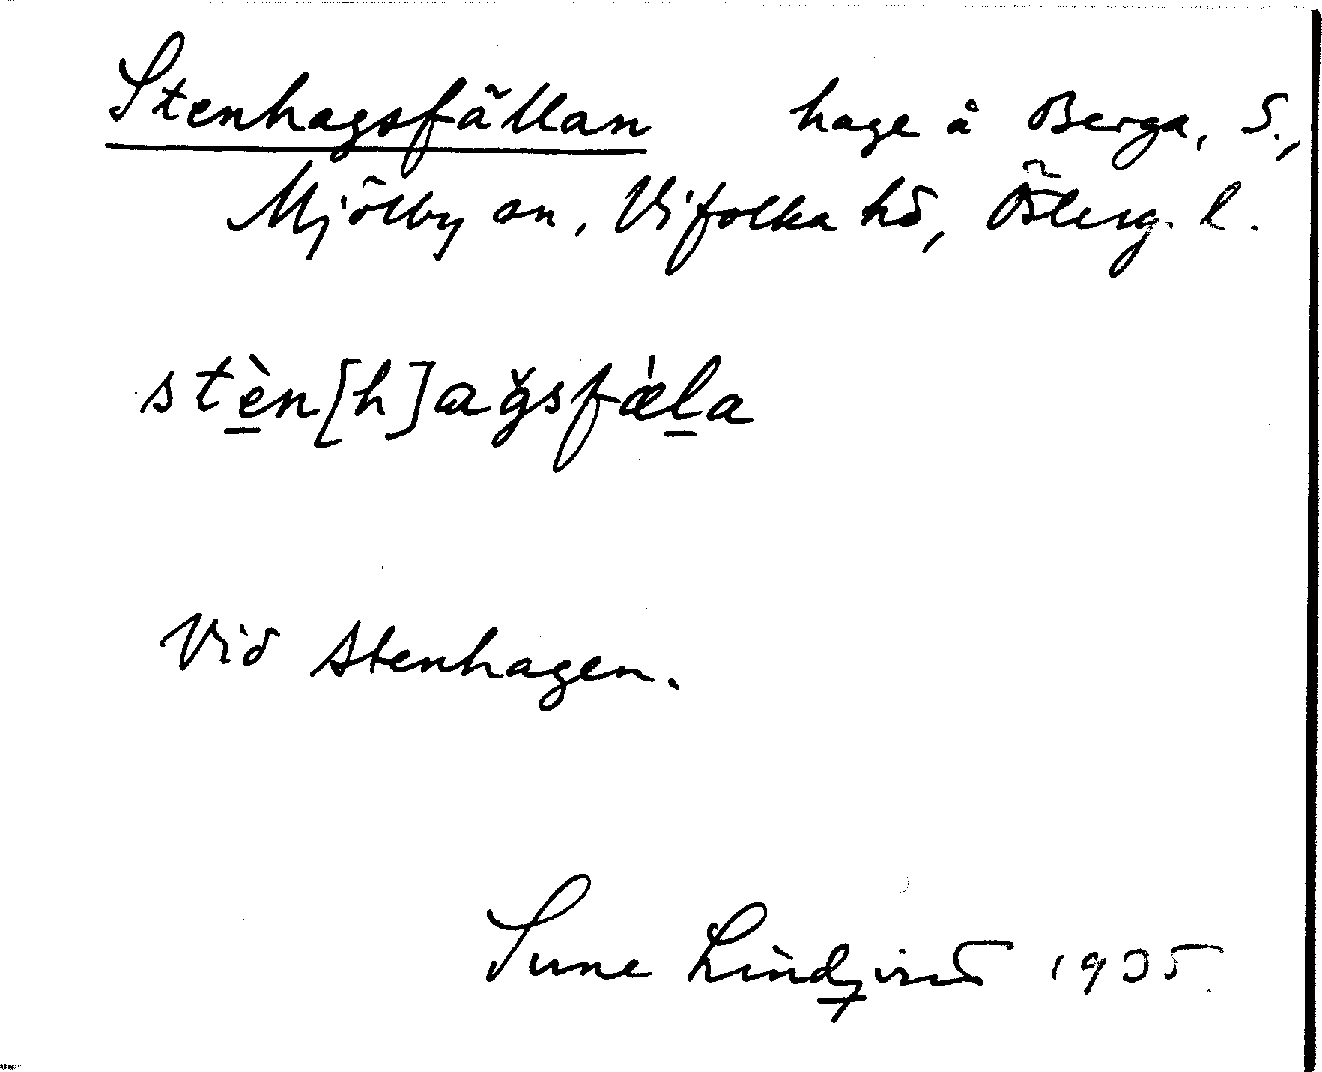 Stenhagsfällan hage å Berga, S.,
Mjölby sn, Vifolka hd, Österg. l.
stèn[h]aǧsfæ̀la
Vid Stenhagen.
Sune Lindqvist 1935